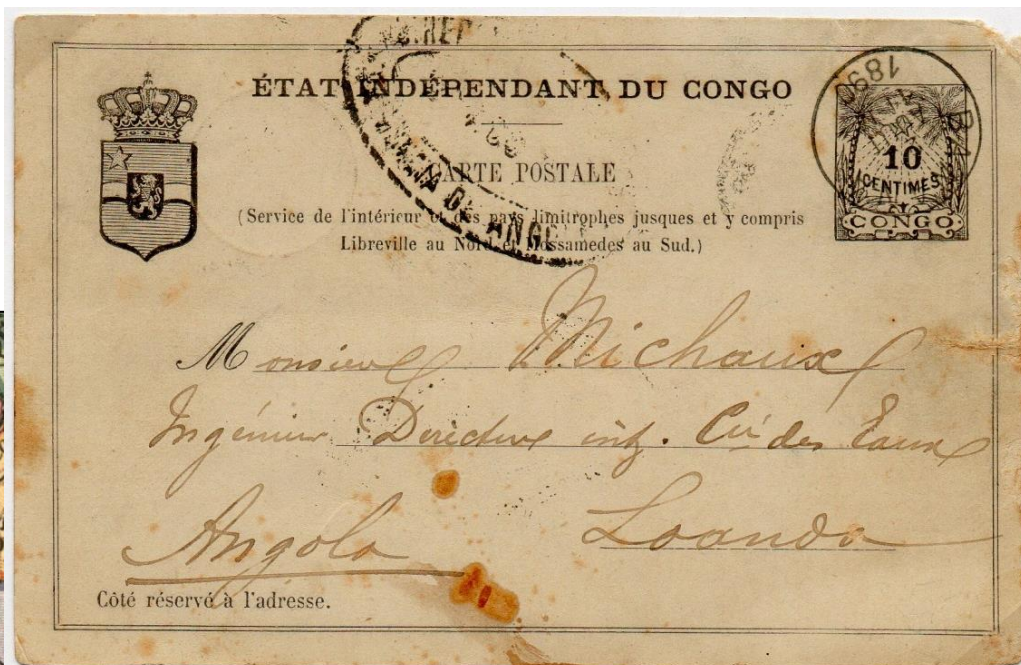 ÉTAT INDÉPENDANT DU CONGO
CARTE POSTALE
(Service de l'intérieur et des pays limitrophes jusques et y compris
Libreville au Nord et Mossamedes au Sud.)
1890
10
CENTIMES
CONGO
Monsieur Michaux
Ingénieur Directeur Cie des Eaux
Angola Loanda
Côté réservé à l'adresse.